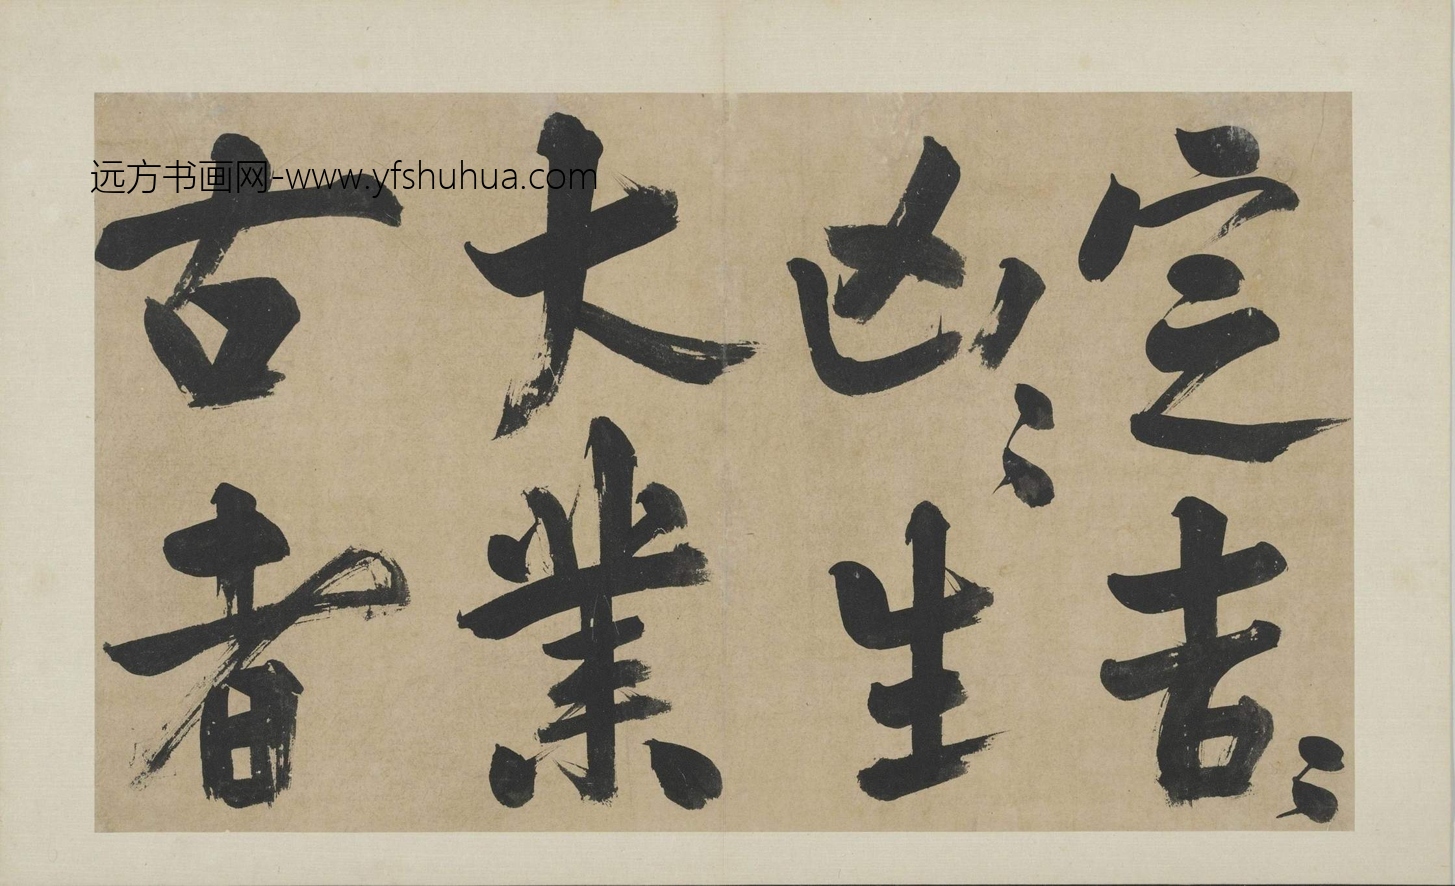 定吉〻
凶〻生
大業
古者
远方书画网-www.yfshuhua.com